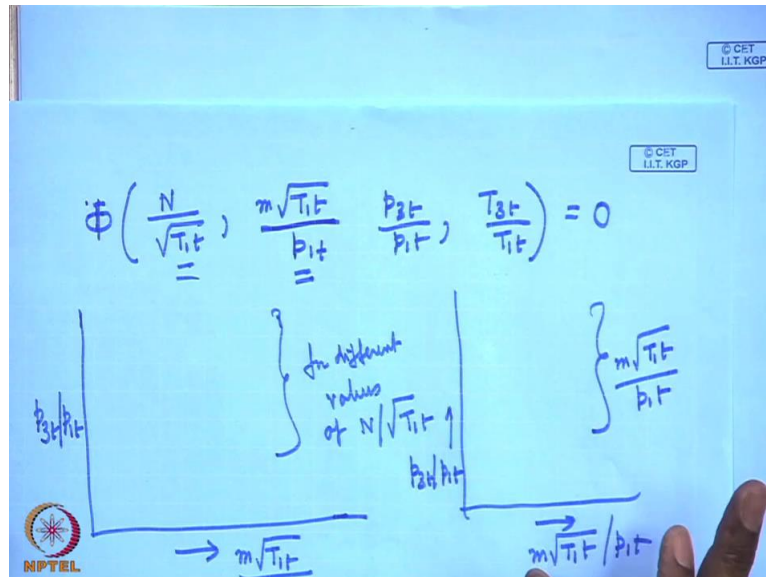 © CET
I.I.T. KGP
© CET
I.I.T. KGP
Φ ( N/√T₁t , m√T₁t/p₁t p₃t/p₁t , T₃t/T₁t ) = 0
p₃t/p₁t
for different
values
of N/√T₁t
→ m√T₁t
↑
p₃t/p₁t
m√T₁t/p₁t
→
m√T₁t/p₁t
NPTEL